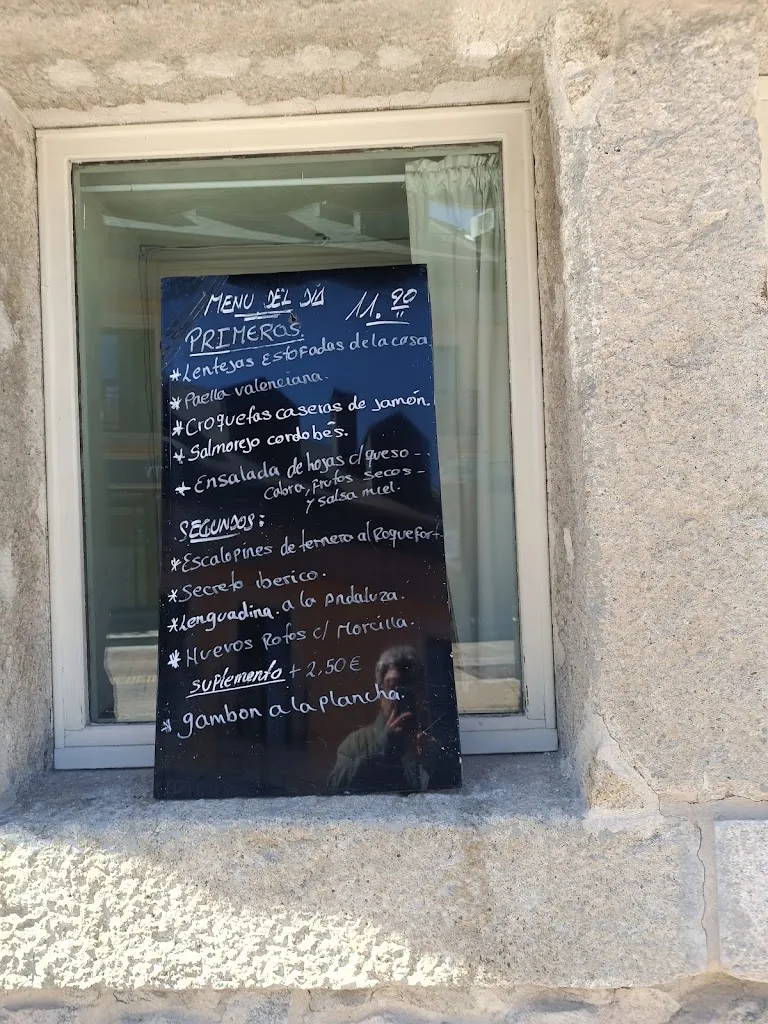 MENU DEL DÍA 11.90
PRIMEROS.
* Lentejas Estofadas de la casa
* Paella valenciana.
* Croquetas caseras de jamón.
* Salmorejo cordobés.
* Ensalada de hojas c/ queso -
Cabra, frutos secos -
y salsa miel.
SEGUNDOS:
* Escalopines de ternera al Roquefort.
* Secreto iberico.
* Lenguadina a la Andaluza.
* Huevos Rotos c/ Morcilla.
suplemento + 2,50 €
* gambon a la plancha.